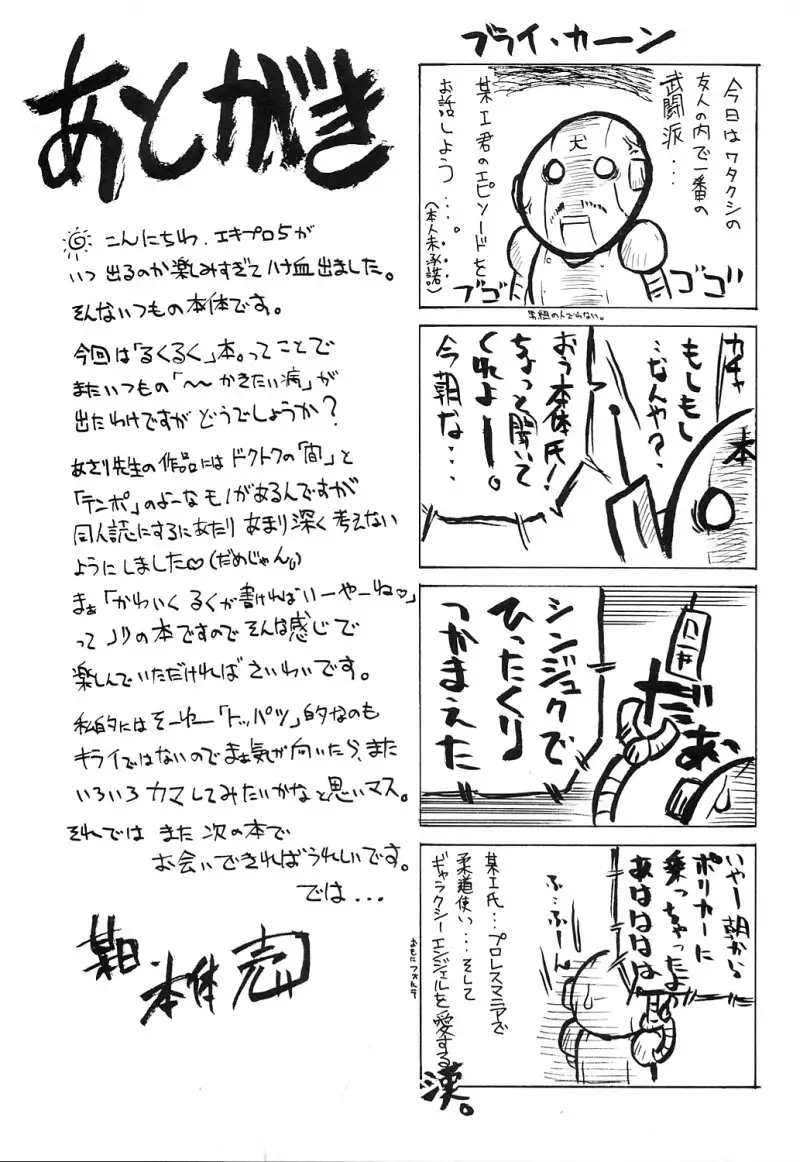 あとがき
こんにちわ、エキプロ5が
いつ出るのか楽しみすぎてハナ血出ました。
そんないつもの本体です。
今回は「るくるく」本。ってことで
またいつもの「〜〜かきたい病」が
出たわけですがどうでしょうか?
あさり先生の作品にはドクトクの「間」と
「テンポ」のよーなモノがあるんですが
同人誌にするにあたりあまり深く考えない
ようにしました♡(だめじゃん。)
まぁ「かわいくるくが書ければいーやーね♡」
ってノリの本ですのでそんな感じで
楽しんでいただければさいわいです。
私的にはそーゆー「トッパツ」的なのも
キライではないのでまぁ気が向いたら、また
いろいろカマしてみたいかなと思いマス。
それでは また 次の本で
お会いできればうれしいです。
では...
某日
本体 売
ブライ・カーン
今日はワタクシの
友人の内で一番の
武闘派…
某エ君のエピソードを
お話しよう…。
(本人未承諾)
犬
ゴゴ
ブゴゴ
男組の人でわない。
カチャ
もしもし
…なんや?
本
おう本体氏!
ちょっと聞いて
くれよー。
今朝な…
シンジュクで
ひったくり
つかまえた
だぁ
いやー朝から
ポリカーに
乗っちゃったよ
あはははは
ふ…ふーん
某エ氏…プロレスマニアで
柔道使い…そして
ギャラクシーエンジェルを愛する
漢。
おもにフォルテ